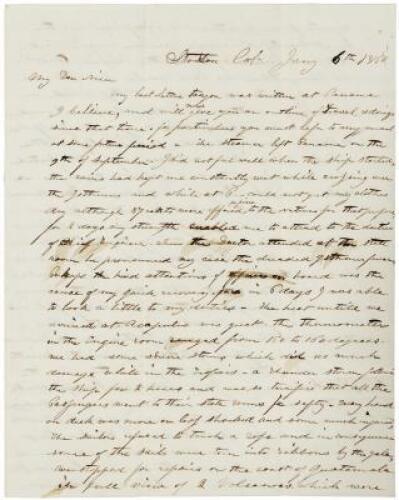 Stockton Cal. Jany 6th 18
My Dear Niece
My last letter to you was written at Panama
I believe, and will give you an outline of travel &
since that time - for particulars you must refer to my
at the steamer left Panama on the
9th of September I did not feel well when the ship started
the rains had kept me constantly wet while crossing over
the Isthmus and while at P. could not get my clothes
dry although were offered to the for that purpose
for 2 days my strength enabled me to attend to the duties
of Engineer when the Doctor attended at the state
room he pronounced my case the dreaded Isthmus fever
Perhaps the kind attentions of on board was the
cause of my quick recovery, for in 6 days I was able
to look a little to my duties - The heat untill we
arrived at Acapulco was great the thermometer
in the engine room ranged from 150 to 160 degrees
we had some severe storms which did us much
damage While in the a thunder storm
the ship for 2 hours and was so terrific that all the
Passengers went to their state rooms for safety - every hand
on deck was more or less shocked and some much injured
the sailors refused to touch a rope and in consequence
some of the sails were torn into ribbons by the gale
we stopped for repairs on the coast of Guatemala
in full view of 2 Volcanoes which were